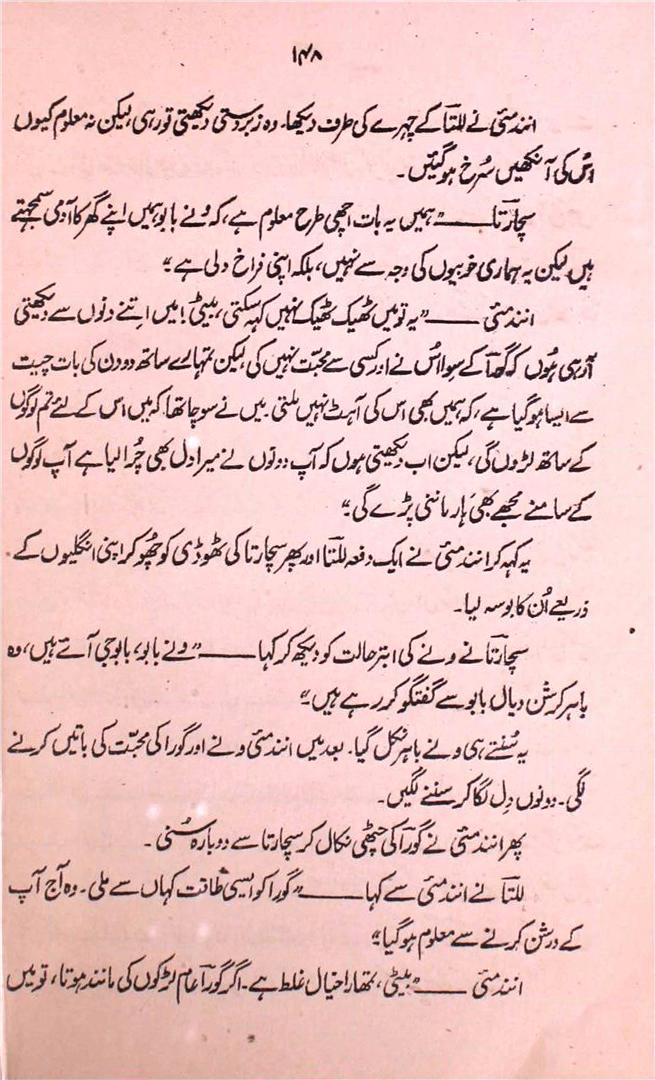 ۱۴۸
انندمئی نے للتا کے چہرے کی طرف دیکھا۔ وہ زبردستی دیکھتی تو رہی، لیکن نہ معلوم کیوں
اُس کی آنکھیں سُرخ ہو گئیں۔
سچارتا ——— "ہمیں یہ بات اچھی طرح معلوم ہے، کہ ونے بابو ہمیں اپنے گھر کا آدمی سمجھتے
ہیں لیکن یہ ہماری خوبیوں کی وجہ سے نہیں، بلکہ اپنی فراخ دلی ہے۔"
انندمئی ——— "یہ تو میں ٹھیک ٹھیک نہیں کہہ سکتی، بیٹی! میں اتنے دنوں سے دیکھتی
آ رہی ہُوں کہ گورا کے سوا اُس نے اور کسی سے محبّت نہیں کی، لیکن تمہارے ساتھ دو دن کی بات چیت
سے ایسا ہو گیا ہے، کہ ہمیں بھی اس کی آہٹ نہیں ملتی۔ میں نے سوچا تھا کہ میں اس کے لئے تم لوگوں
کے ساتھ لڑوں گی، لیکن اب دیکھتی ہوں کہ آپ دونوں نے میرا دل بھی چُرا لیا ہے آپ لوگوں
کے سامنے مجھے بھی ہار ماننی پڑے گی۔"
یہ کہہ کر انندمئی نے ایک دفعہ للتا اور پھر سچارتا کی ٹھوڈی کو چھُو کر اپنی انگلیوں کے
ذریعے اُن کا بوسہ لیا۔
سچارتا نے ونے کی ابتر حالت کو دیکھ کر کہا ——— "ونے بابو، بابوجی آئے ہیں، وہ
باہر کرشن دیال بابو سے گفتگو کر رہے ہیں۔"
یہ سُنتے ہی ونے باہر نکل گیا۔ بعد میں انندمئی ونے اور گورا کی محبّت کی باتیں کرنے
لگی۔ دونوں دِل لگا کر سننے لگیں۔
پھر انندمئی نے گورا کی چٹھی نکال کر سچارتا سے دوبارہ سُنی۔
للتا نے انندمئی سے کہا ——— "گورا کو ایسی طاقت کہاں سے ملی۔ وہ آج آپ
کے درشن کرنے سے معلوم ہو گیا۔"
انندمئی ——— "بیٹی، تمہارا خیال غلط ہے۔ اگر گورا عام لڑکوں کی مانند ہوتا، تو میں